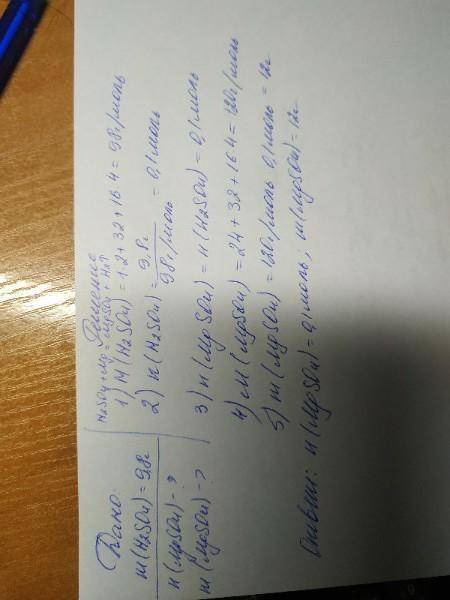 Дано:
m(H2SO4)=9,8г
n(MgSO4)-?
m(MgSO4)-?
Решение
H2SO4+Mg=MgSO4+H2↑
1) M(H2SO4)=1·2+32+16·4=98г/моль
2) n(H2SO4)=9,8г/98г/моль=0,1моль
3) n(MgSO4)=n(H2SO4)=0,1моль
4) M(MgSO4)=24+32+16·4=120г/моль
5) m(MgSO4)=120г/моль·0,1моль=12г
Ответ: n(MgSO4)=0,1моль; m(MgSO4)=12г